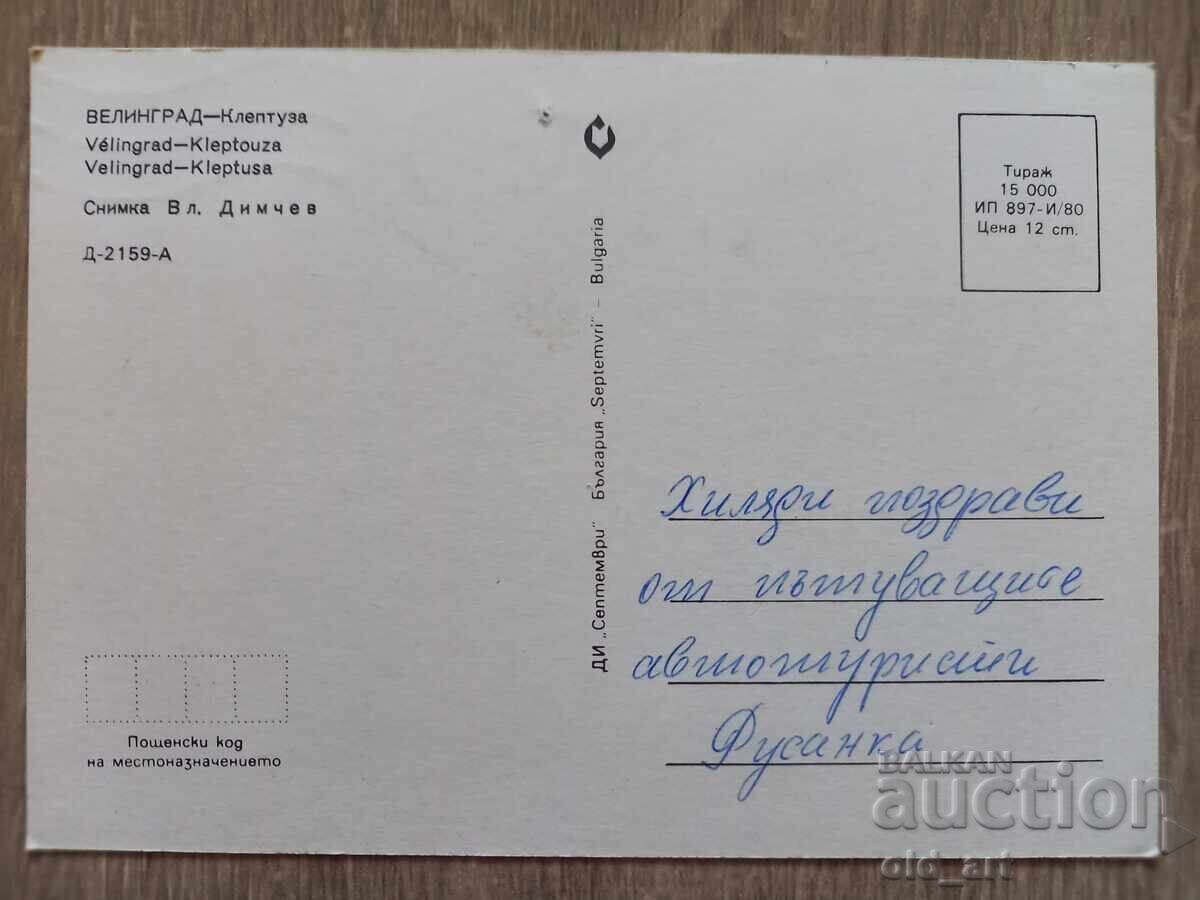 ВЕЛИНГРАД—Клептуза
Vélingrad—Kleptouza
Velingrad—Kleptusa
Снимка Вл. Димчев
Д-2159-А
Пощенски код
на местоназначението
ДИ „Септември" България „Septemvri" – Bulgaria
Тираж
15 000
ИП 897-И/80
Цена 12 ст.
Хиляди поздрави
от пътуващите
автотуристи
Фусанка
BALKAN
auction
old_art